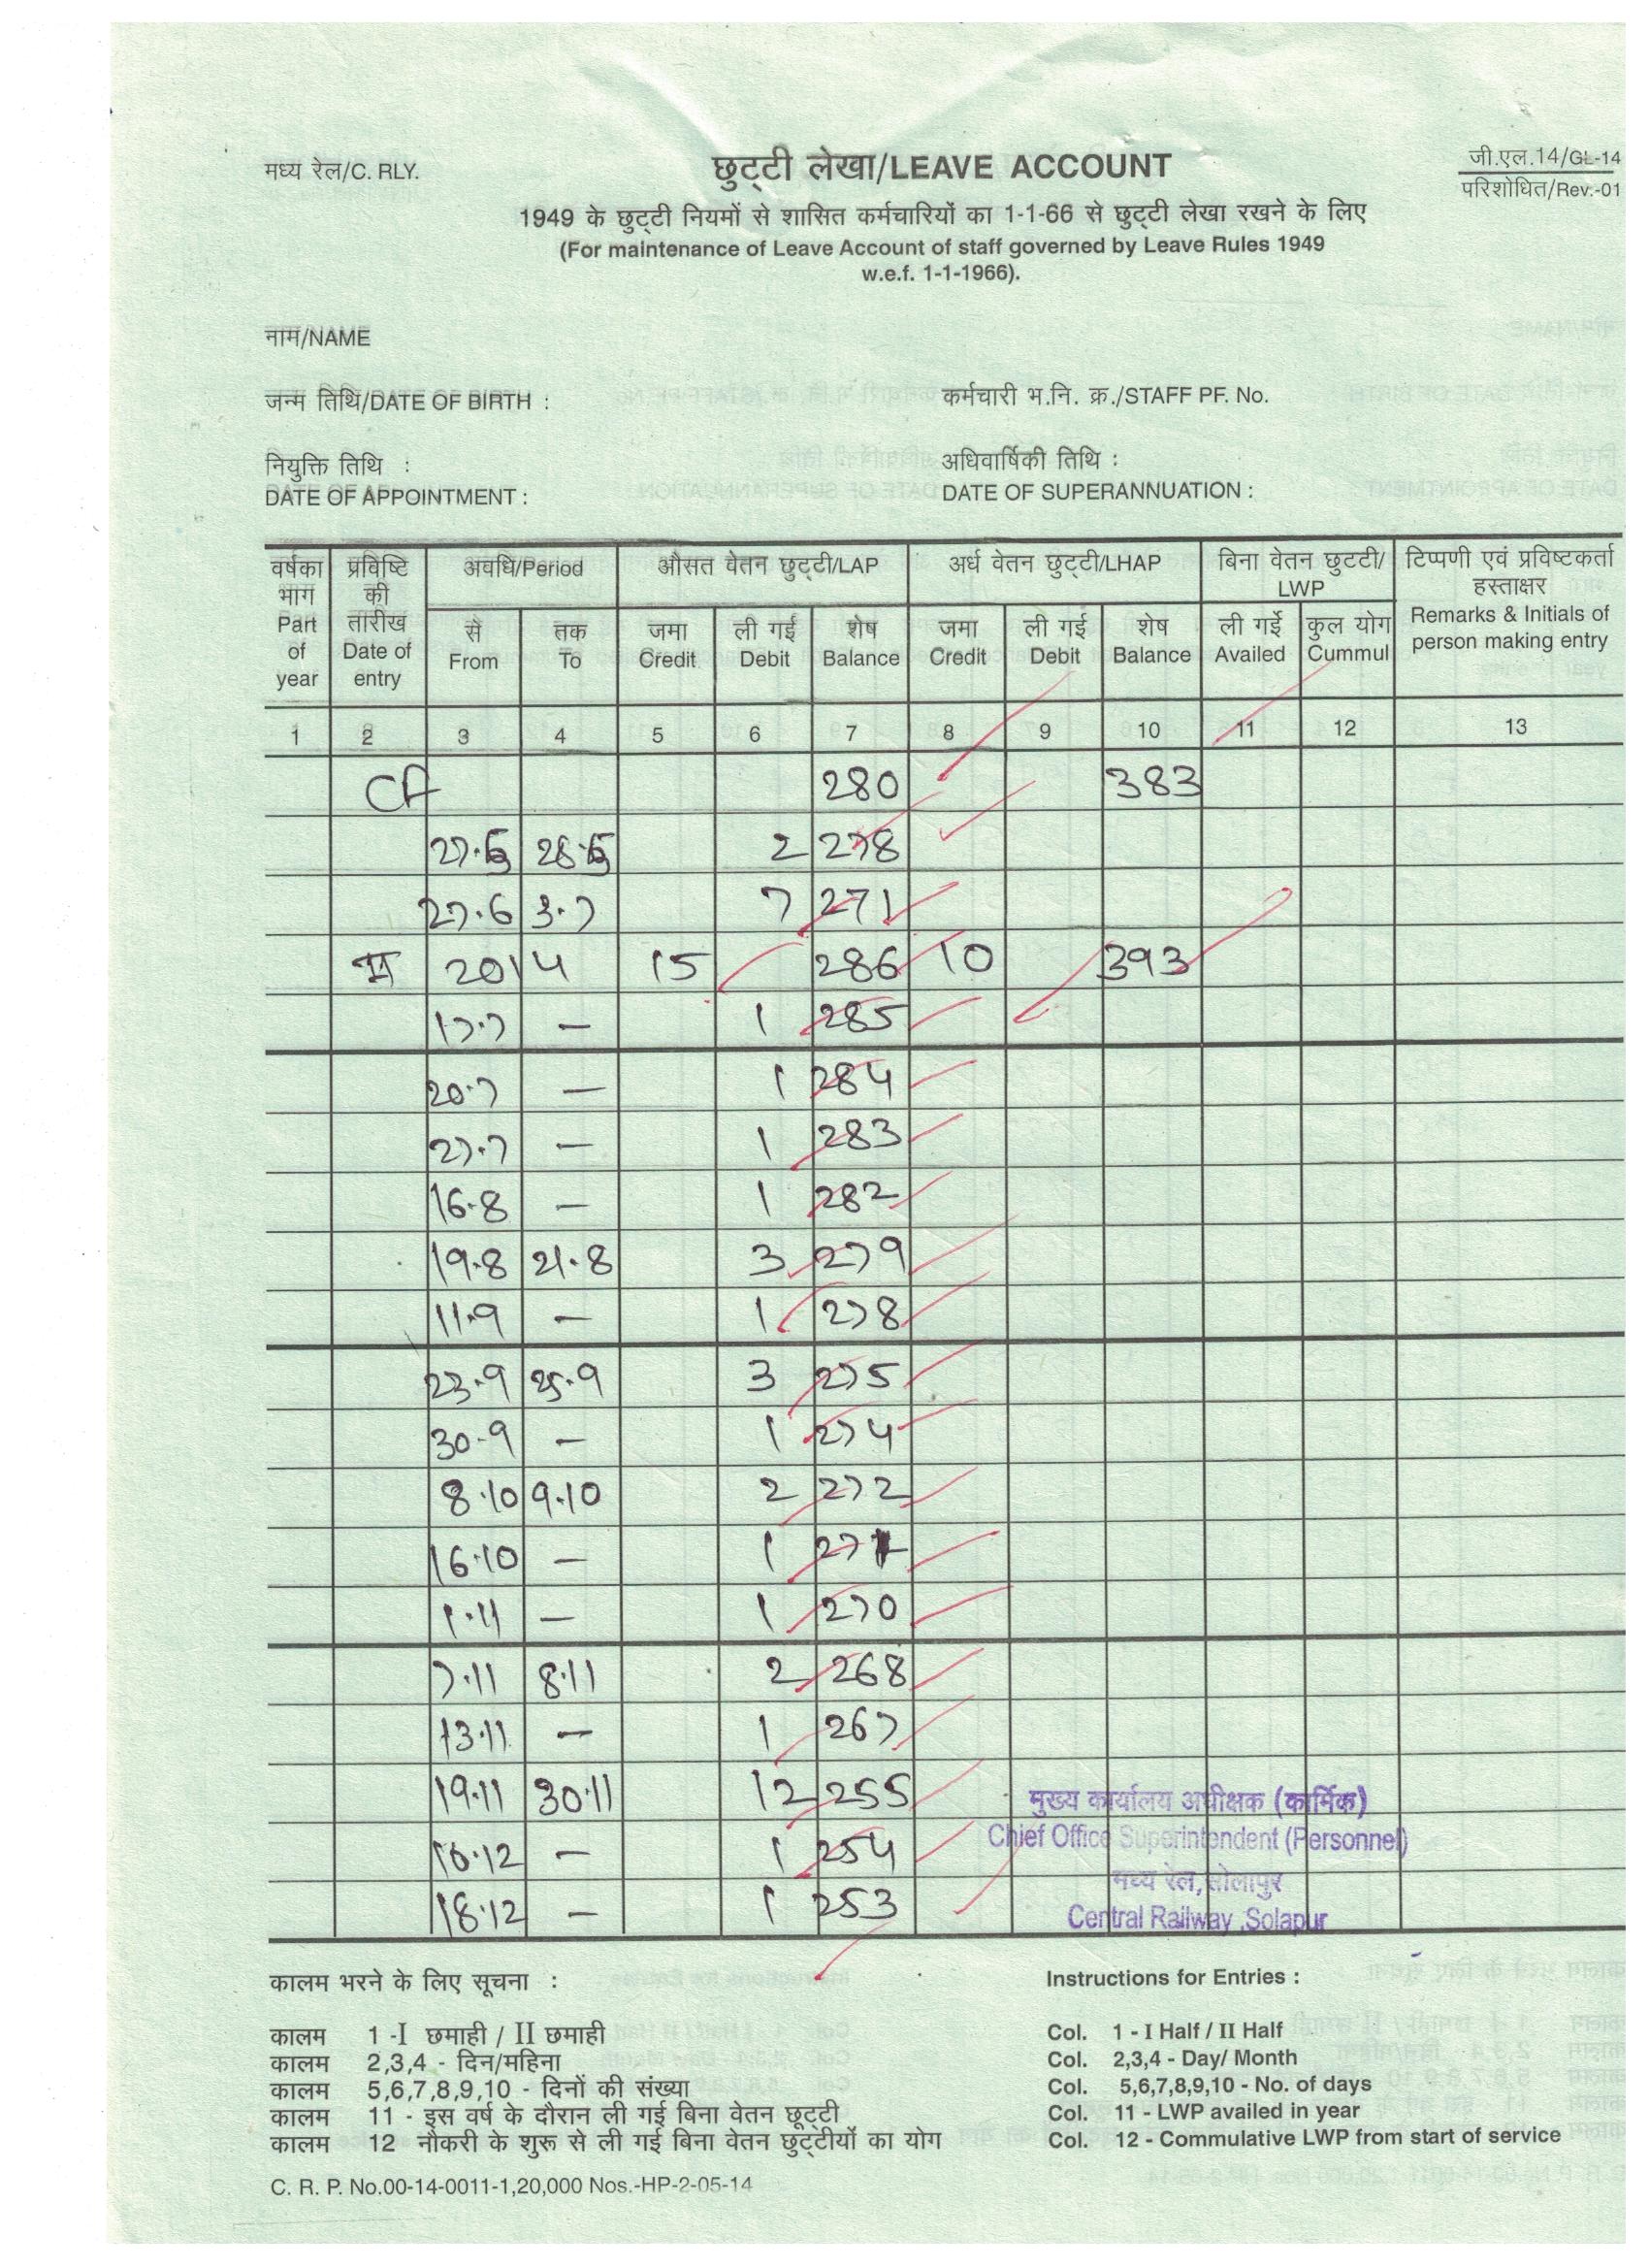 मध्य रेल/C. RLY.
छुट्टी लेखा/LEAVE ACCOUNT
जी.एल.14/GL-14
परिशोधित/Rev.-01
1949 के छुट्टी नियमों से शासित कर्मचारियों का 1-1-66 से छुट्टी लेखा रखने के लिए
(For maintenance of Leave Account of staff governed by Leave Rules 1949
w.e.f. 1-1-1966).
नाम/NAME
जन्म तिथि/DATE OF BIRTH :
कर्मचारी भ.नि. क्र./STAFF PF. No.
नियुक्ति तिथि :
DATE OF APPOINTMENT :
अधिवार्षिकी तिथि :
DATE OF SUPERANNUATION :
वर्षका भाग Part of year
प्रविष्टि की तारीख Date of entry
अवधि/Period
औसत वेतन छुट्टी/LAP
अर्ध वेतन छुट्टी/LHAP
बिना वेतन छुटटी/LWP
टिप्पणी एवं प्रविष्टकर्ता हस्ताक्षर Remarks & Initials of person making entry
से From
तक To
जमा Credit
ली गई Debit
शेष Balance
जमा Credit
ली गई Debit
शेष Balance
ली गईे Availed
कुल योग Cummul
1 2 3 4 5 6 7 8 9 10 11 12 13
CF 280 383
27.5 28.5 2 278
27.6 3.7 7 271
II 2014 15 286 10 393
17.7 — 1 285
20.7 — 1 284
27.7 — 1 283
16.8 — 1 282
19.8 21.8 3 279
11.9 — 1 278
23.9 25.9 3 275
30.9 — 1 274
8.10 9.10 2 272
16.10 — 1 271
1.11 — 1 270
7.11 8.11 2 268
13.11 — 1 267
19.11 30.11 12 255
— 1 254
18.12 — 1 253
मुख्य कार्यालय अधीक्षक (कार्मिक)
Chief Office Superintendent (Personnel)
मध्य रेल, सोलापुर
Central Railway, Solapur
कालम भरने के लिए सूचना :
कालम 1 -I छमाही / II छमाही
कालम 2,3,4 - दिन/महिना
कालम 5,6,7,8,9,10 - दिनों की संख्या
कालम 11 - इस वर्ष के दौरान ली गई बिना वेतन छूट्टी
कालम 12 नौकरी के शुरू से ली गई बिना वेतन छुट्टीयों का योग
Instructions for Entries :
Col. 1 - I Half / II Half
Col. 2,3,4 - Day/ Month
Col. 5,6,7,8,9,10 - No. of days
Col. 11 - LWP availed in year
Col. 12 - Commulative LWP from start of service
C. R. P. No.00-14-0011-1,20,000 Nos.-HP-2-05-14